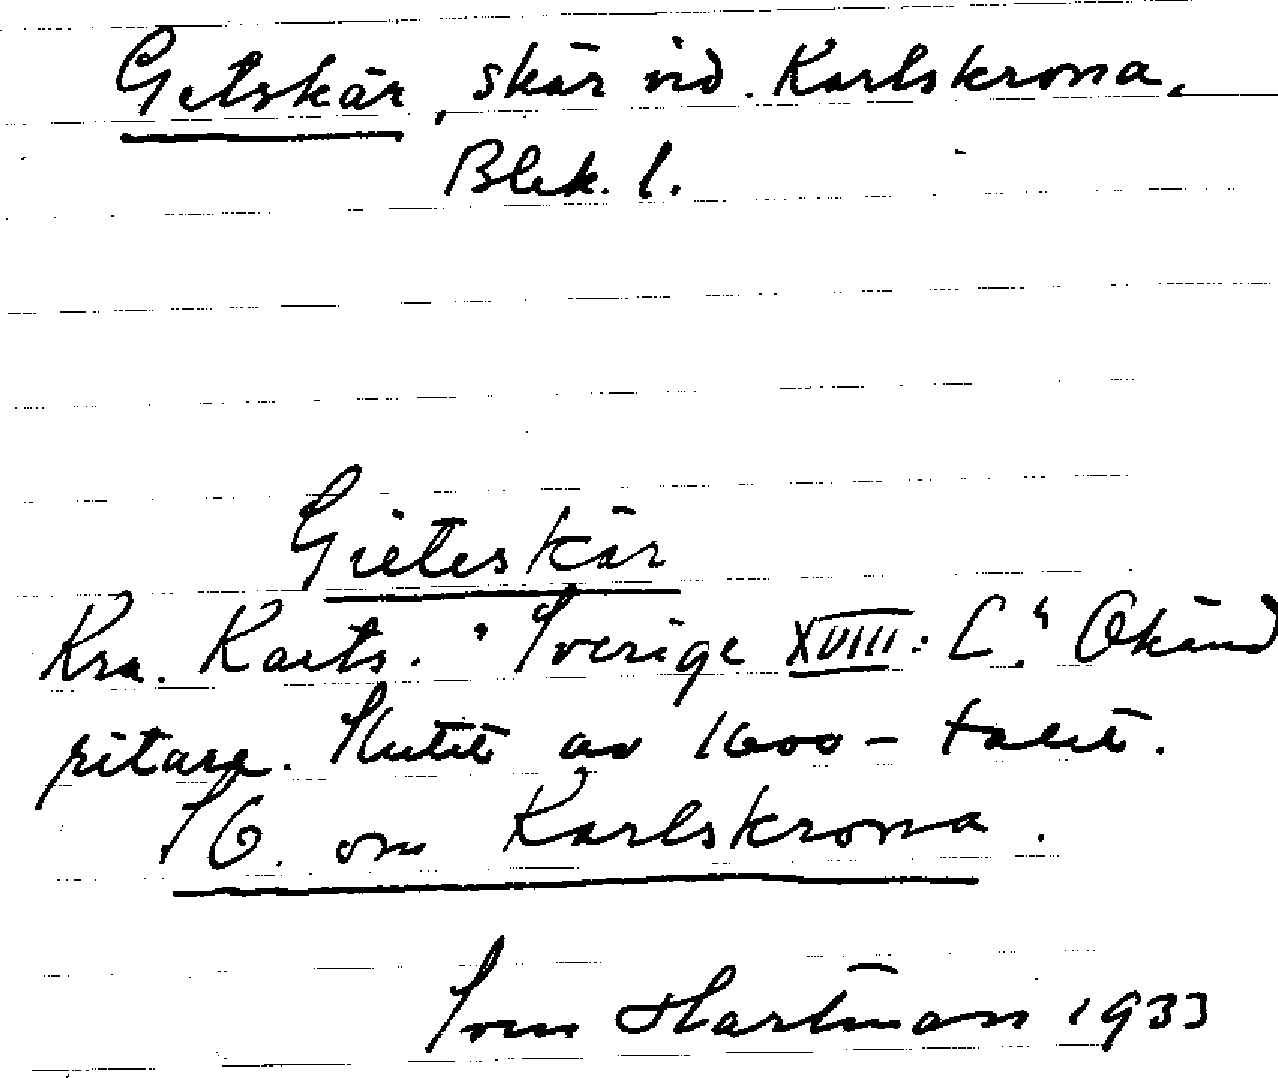 Getskär, skär vid Karlskrona,
Blek. l.
Gieteskär
Kra. Karts. "Sverige XVIII: C." Okänd
ritare. Slutet av 1600-talet.
SO. om Karlskrona.
Sven Hartman 1933